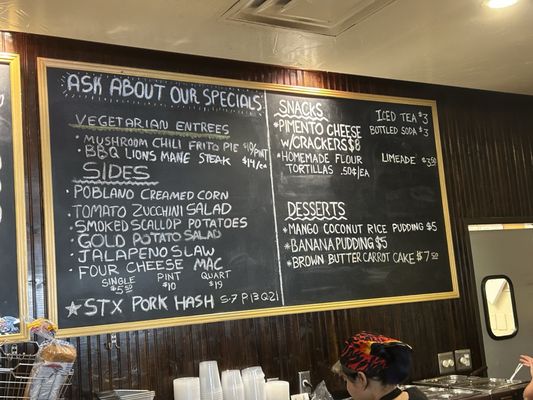 ASK ABOUT OUR SPECIALS
VEGETARIAN ENTREES
· MUSHROOM CHILI FRITO PIE $10/PINT
· BBQ LIONS MANE STEAK $14/EA
SIDES
· POBLANO CREAMED CORN
· TOMATO ZUCCHINI SALAD
· SMOKED SCALLOP POTATOES
· GOLD POTATO SALAD
· JALAPENO SLAW
· FOUR CHEESE MAC
SINGLE PINT QUART
$5.50 $10 $19
★ STX PORK HASH S·7 P·13 Q·21
SNACKS
* PIMENTO CHEESE
W/CRACKERS $8
* HOMEMADE FLOUR
TORTILLAS .50¢/EA
DESSERTS
* MANGO COCONUT RICE PUDDING $5
* BANANA PUDDING $5
* BROWN BUTTER CARROT CAKE $7.50
ICED TEA $3
BOTTLED SODA $3
LIMEADE $3.50